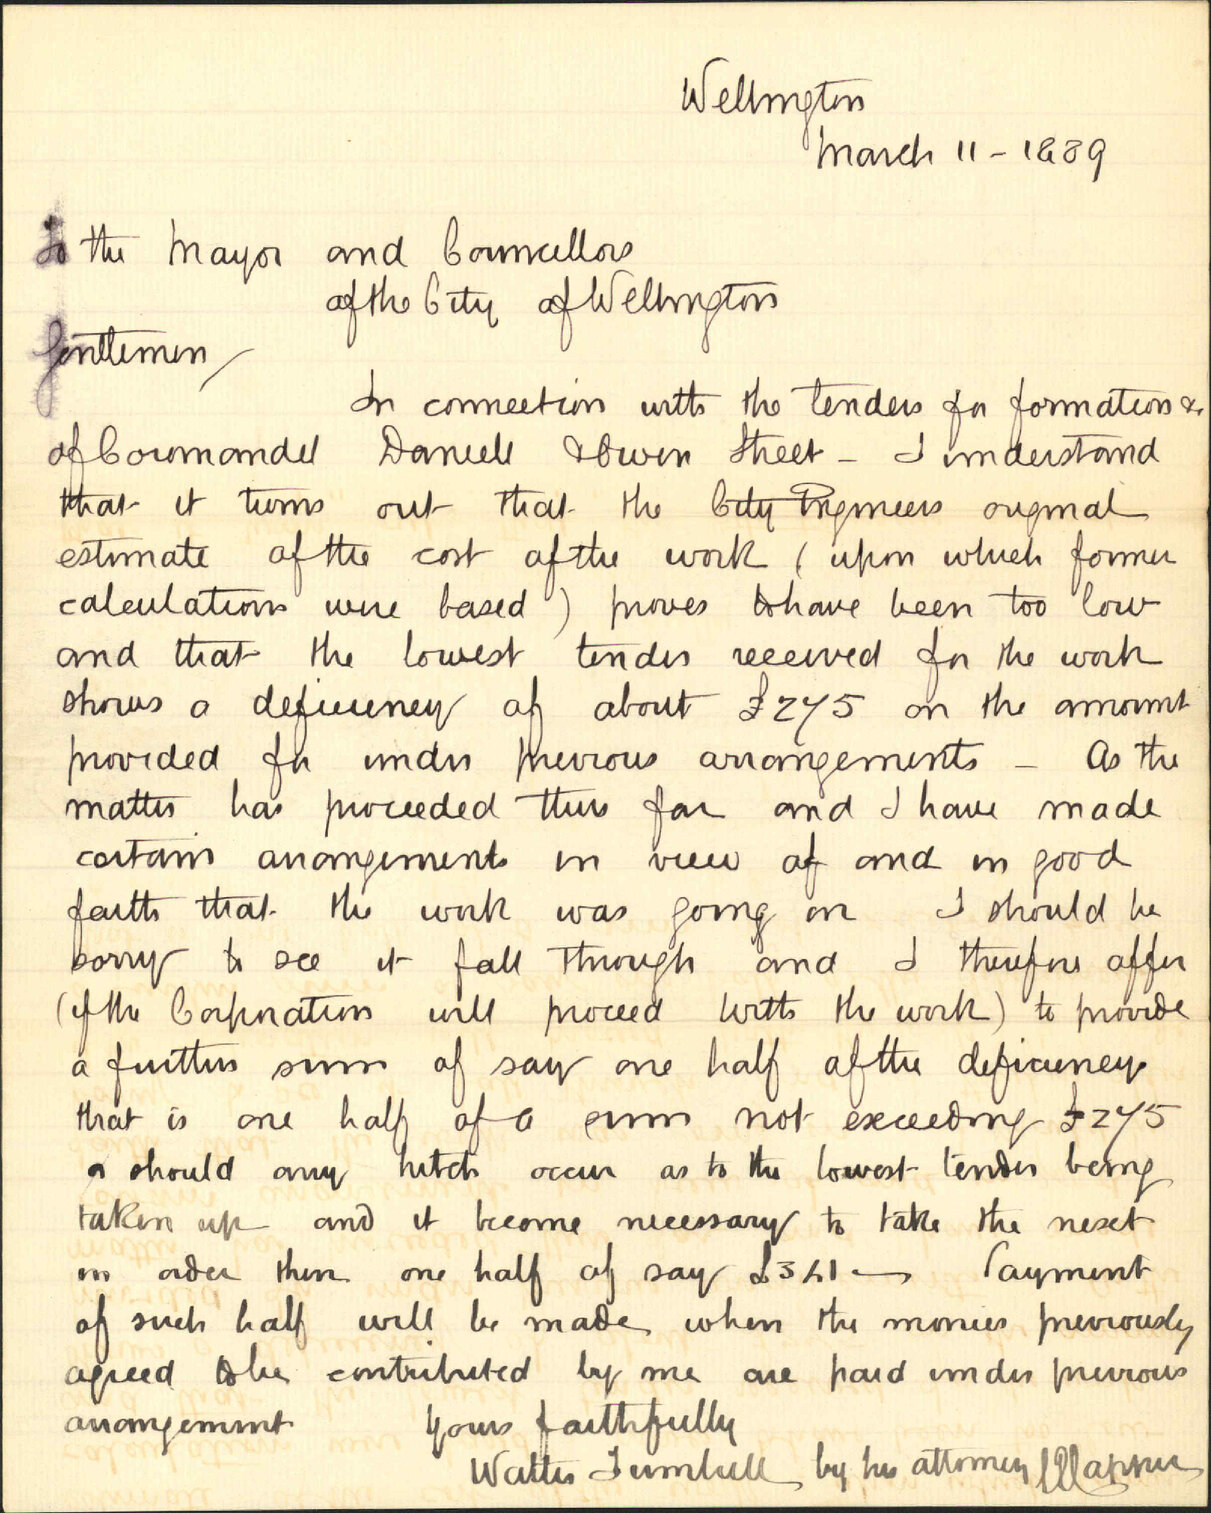 Wellington
March 11 - 1889
To the Mayor and Councellors
of the City of Wellington
Gentlemen
In connection with the tenders for formation &c
of Coromandel Daniell & Owen Street - I understand
that it turns out that the City Engineers original
estimate of the cost of the work (upon which former
calculations were based) proves to have been too low
and that the lowest tender received for the work
shows a deficiency of about £275 on the amount
provided for under previous arrangements - As the
matter has proceeded thus far and I have made
certain arrangements in view of and in good
faith that the work was going on I should be
sorry to see it fall through and I therefore offer
(if the Corporation will proceed with the work) to provide
a further sum of say one half of the deficiency
that is one half of a sum not exceeding £275
or should any hitch occur as to the lowest tender being
taken up and it become necessary to take the next
in order then one half of say Payment
of such half will be made when the monies previously
agreed to be contributed by me are paid under previous
arrangement Yours faithfully
Walter Turnbull by his attorney